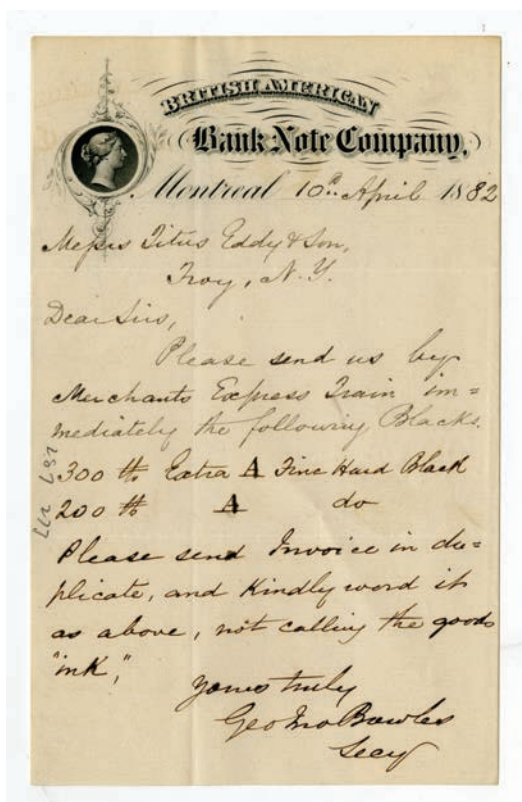 BRITISH AMERICAN
Bank Note Company,
Montreal 10th April 1882
Messrs Titus Eddy & Son,
Troy, N.Y.
Dear Sirs,
Please send us by
Merchants Express Train im=
mediately the following Blacks.
300 lb Extra A Fine Hard Black
200 lb A do
Please send Invoice in du=
plicate, and kindly word it
as above, not calling the goods
"ink,"
Yours truly
Geo Jno Bowles
Secy